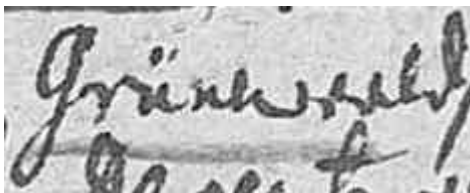 Grünwald